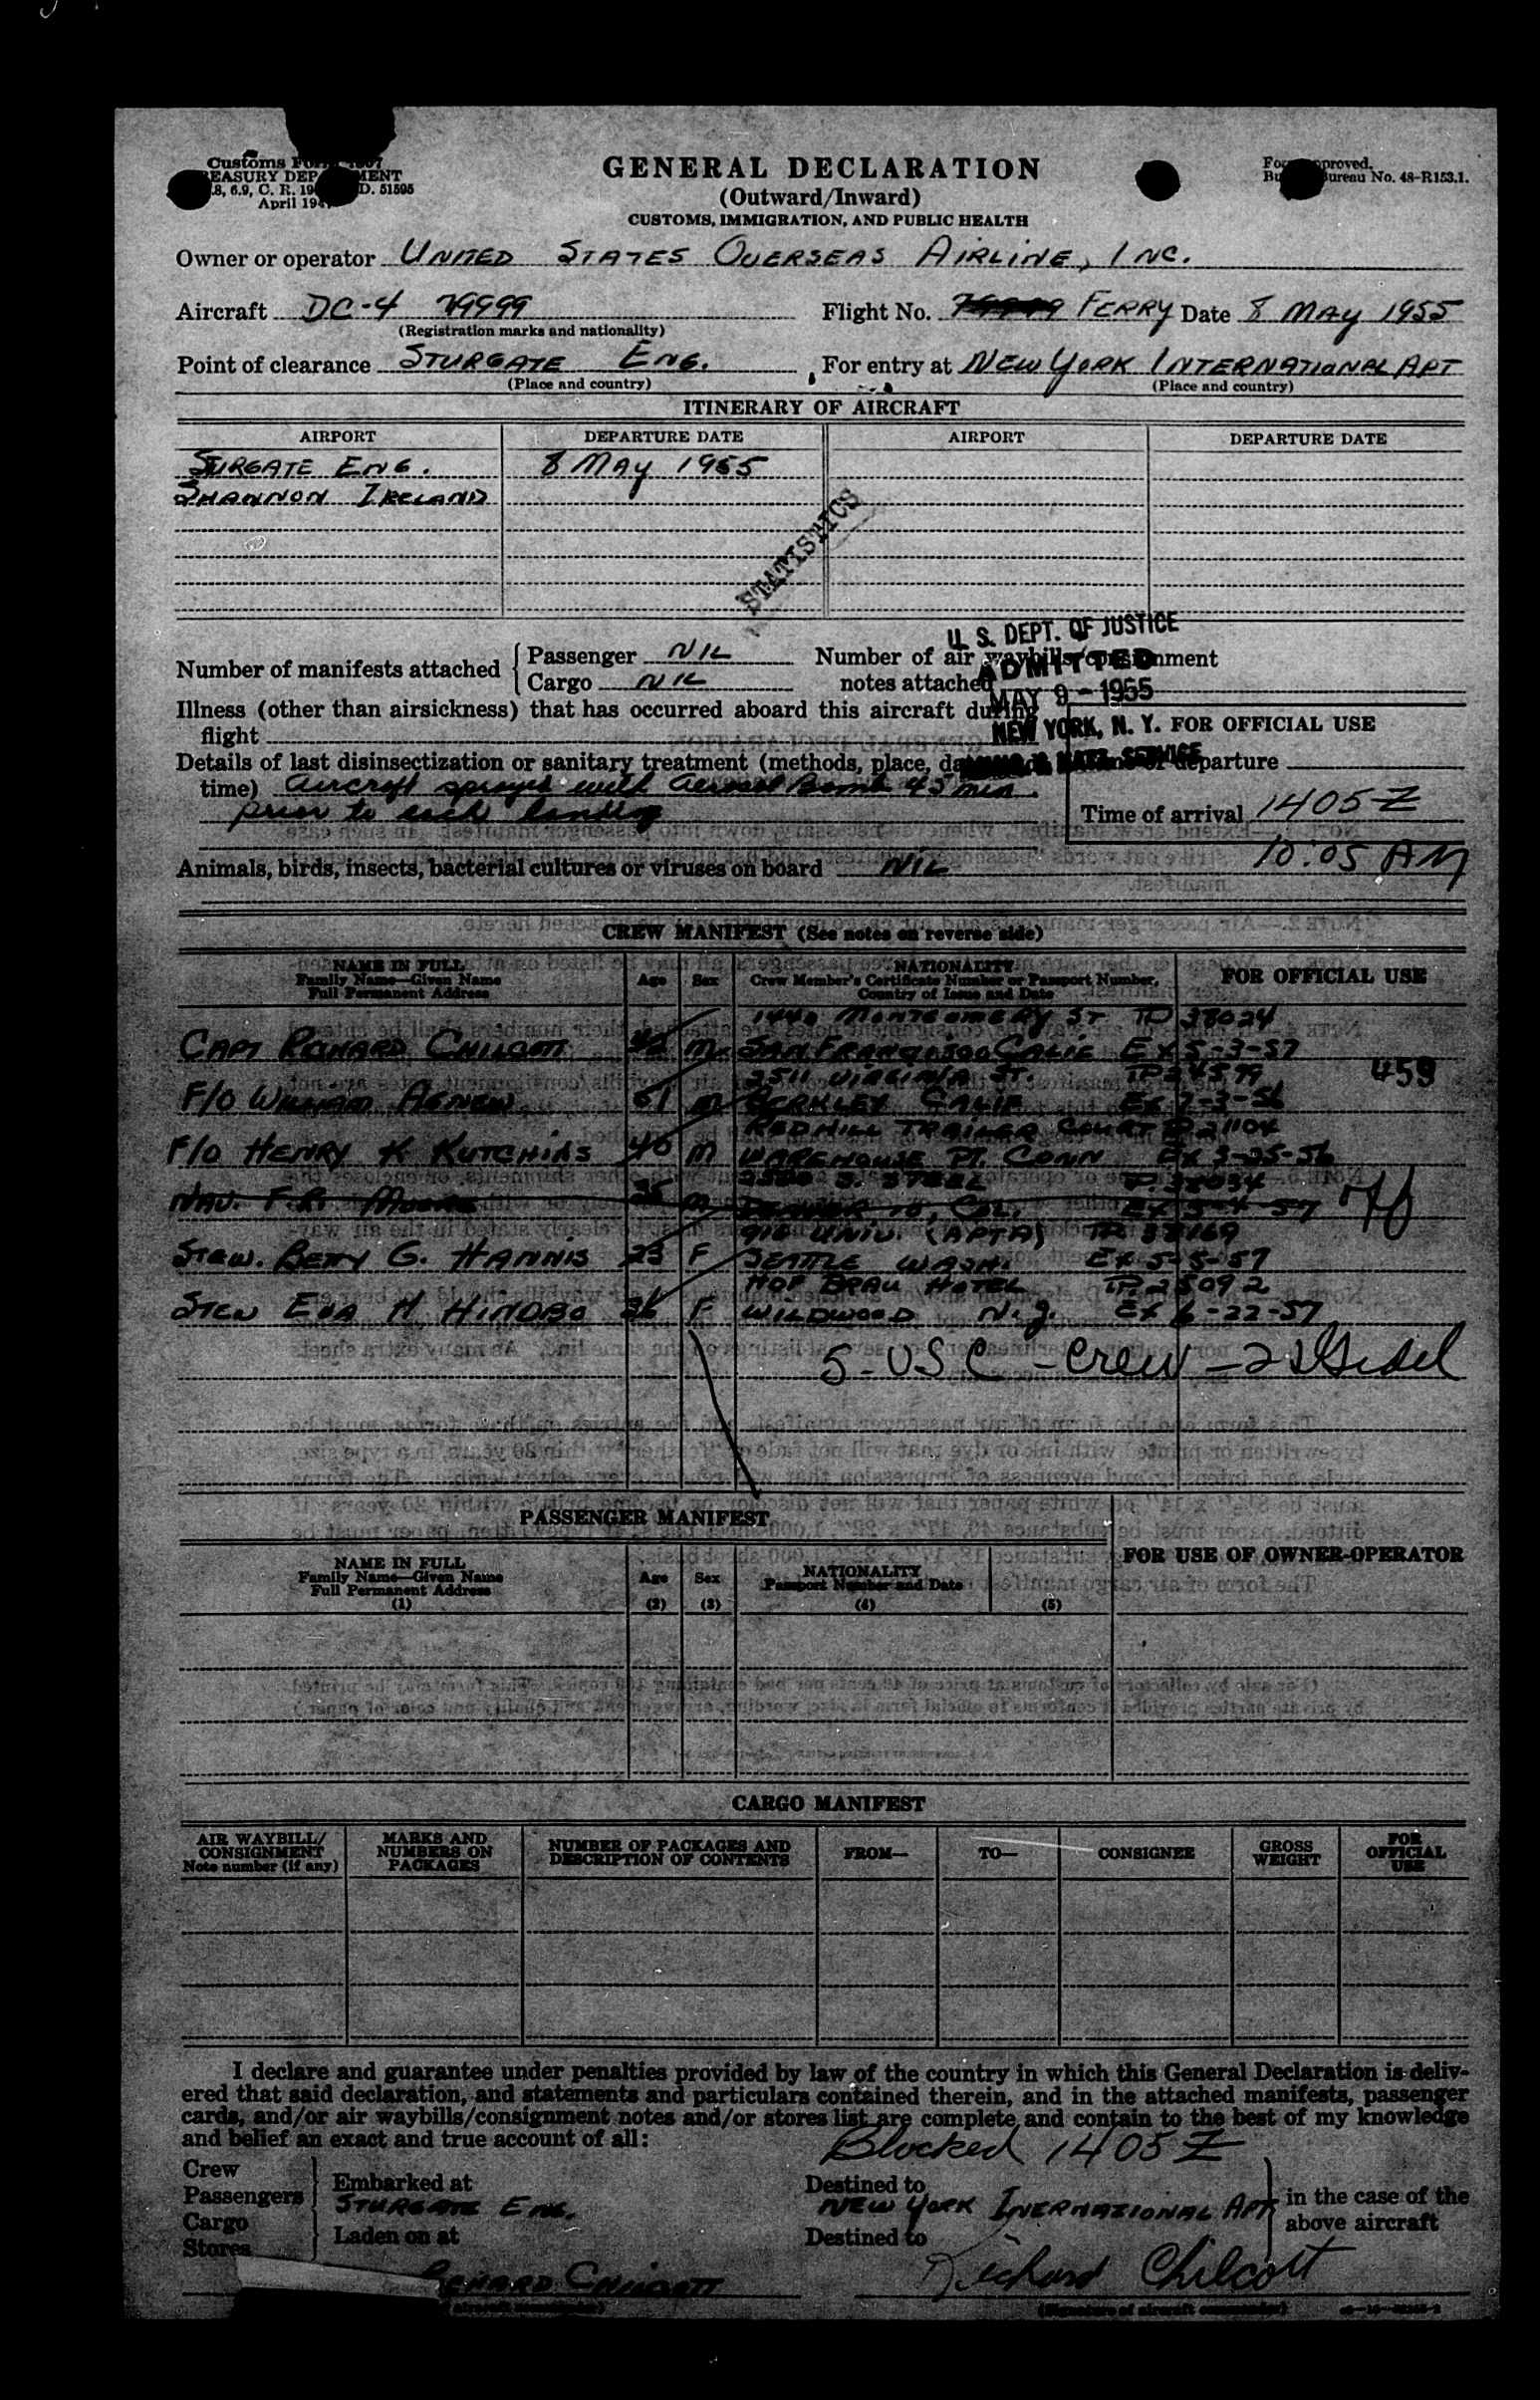 Customs Form
TREASURY DEPARTMENT
April 194
GENERAL DECLARATION
(Outward/Inward)
CUSTOMS, IMMIGRATION, AND PUBLIC HEALTH
Form approved.
Bureau No. 48-R153.1.
Owner or operator UNITED STATES OVERSEAS AIRLINE, INC.
Aircraft DC-4 79999 Flight No. FERRY Date 8 MAY 1955
(Registration marks and nationality)
Point of clearance STURGATE ENG. For entry at NEW YORK INTERNATIONAL APT
(Place and country) (Place and country)
ITINERARY OF AIRCRAFT
AIRPORT DEPARTURE DATE AIRPORT DEPARTURE DATE
STURGATE ENG. 8 MAY 1955
SHANNON IRELAND
STATISTICS
U. S. DEPT. OF JUSTICE
ADMITTED
MAY 9 - 1955
NEW YORK, N. Y.
Number of manifests attached Passenger NIL Number of air waybills/consignment
Cargo NIL notes attached
Illness (other than airsickness) that has occurred aboard this aircraft during
flight
FOR OFFICIAL USE
Details of last disinsectization or sanitary treatment (methods, place, date departure
time) Aircraft sprayed with Aerosol Bomb 45 min.
prior to each landing
Time of arrival 1405 Z
10:05 AM
Animals, birds, insects, bacterial cultures or viruses on board NIL
CREW MANIFEST (See notes on reverse side)
NAME IN FULL Age Sex NATIONALITY FOR OFFICIAL USE
Family Name—Given Name Crew Member's Certificate Number or Passport Number,
Full Permanent Address Country of Issue and Date
1440 MONTGOMERY ST TP 38024
CAPT RICHARD CHILCOTT 42 M SAN FRANCISCO CALIF EX 5-3-57
2511 VIRGINIA ST. TP 24599
459
F/O WILLIAM AGNEW M BERKLEY CALIF
REDHILL TRAILER COURT P 21104
F/O HENRY K KUTCHINS 40 M WAREHOUSE PT. CONN EX 3-25-56
P. 38034
NAV. F.R. MOORE 35 M EX 5-4-57
916 UNIV. (APTA) TP 38169
STEW. BETTY G. HANNIS 23 F SEATTLE WASH. EX 5-5-57
HOF BRAU HOTEL P. 25092
STEW EVA H 26 F WILDWOOD N.J. EX 6-22-57
5-USC-Crew-
PASSENGER MANIFEST
NAME IN FULL Age Sex NATIONALITY FOR USE OF OWNER-OPERATOR
Family Name—Given Name Passport Number and Date
Full Permanent Address
(1) (2) (3) (4) (5)
CARGO MANIFEST
AIR WAYBILL/ CONSIGNMENT Note number (if any) MARKS AND NUMBERS ON PACKAGES NUMBER OF PACKAGES AND DESCRIPTION OF CONTENTS FROM— TO— CONSIGNEE GROSS WEIGHT FOR OFFICIAL USE
I declare and guarantee under penalties provided by law of the country in which this General Declaration is deliv-
ered that said declaration, and statements and particulars contained therein, and in the attached manifests, passenger
cards, and/or air waybills/consignment notes and/or stores list are complete and contain to the best of my knowledge
and belief an exact and true account of all:
Blocked 1405 Z
Crew Embarked at Destined to
Passengers STURGATE ENG. NEW YORK INERNAZIONAL APT in the case of the
Cargo Laden on at Destined to above aircraft
Stores
RICHARD CHILCOTT Richard Chilcott
(Signature of aircraft commander)